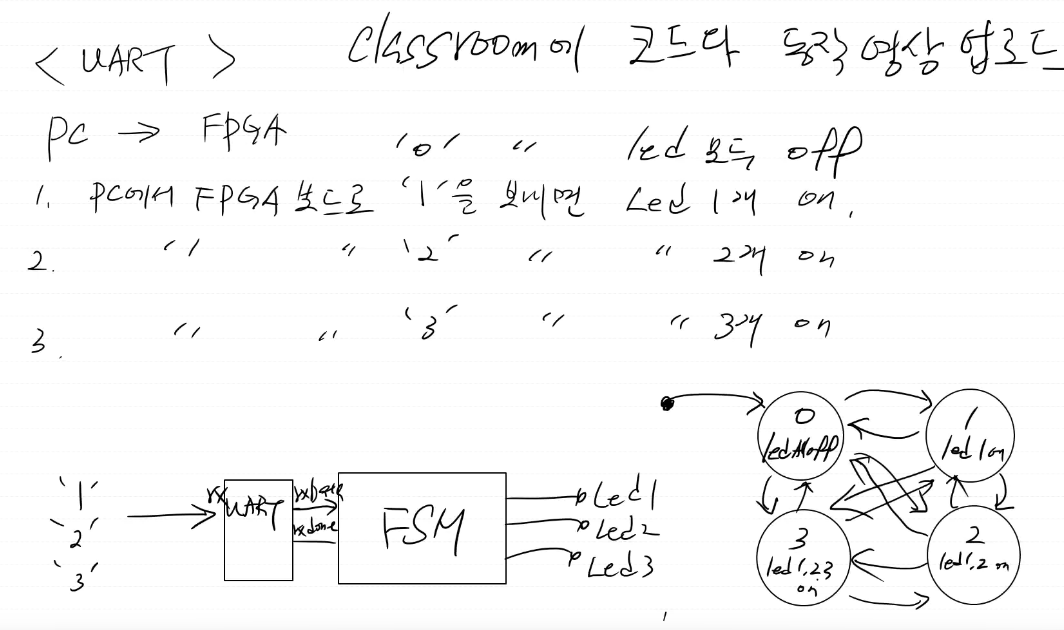 < UART > Classroom에 코드와 동작영상 업로드
PC → FPGA
'0' " led 모두 off
1. PC에서 FPGA 보드로 '1'을 보내면 Led 1개 on.
2. " " '2' " " 2개 on
3. " " '3' " " 3개 on
'1'
'2'
'3'
rx
UART
rx done
FSM
Led1
Led2
Led3
0
led All off
1
led 1 on
3
led 1,2,3
on
2
led 1,2 on